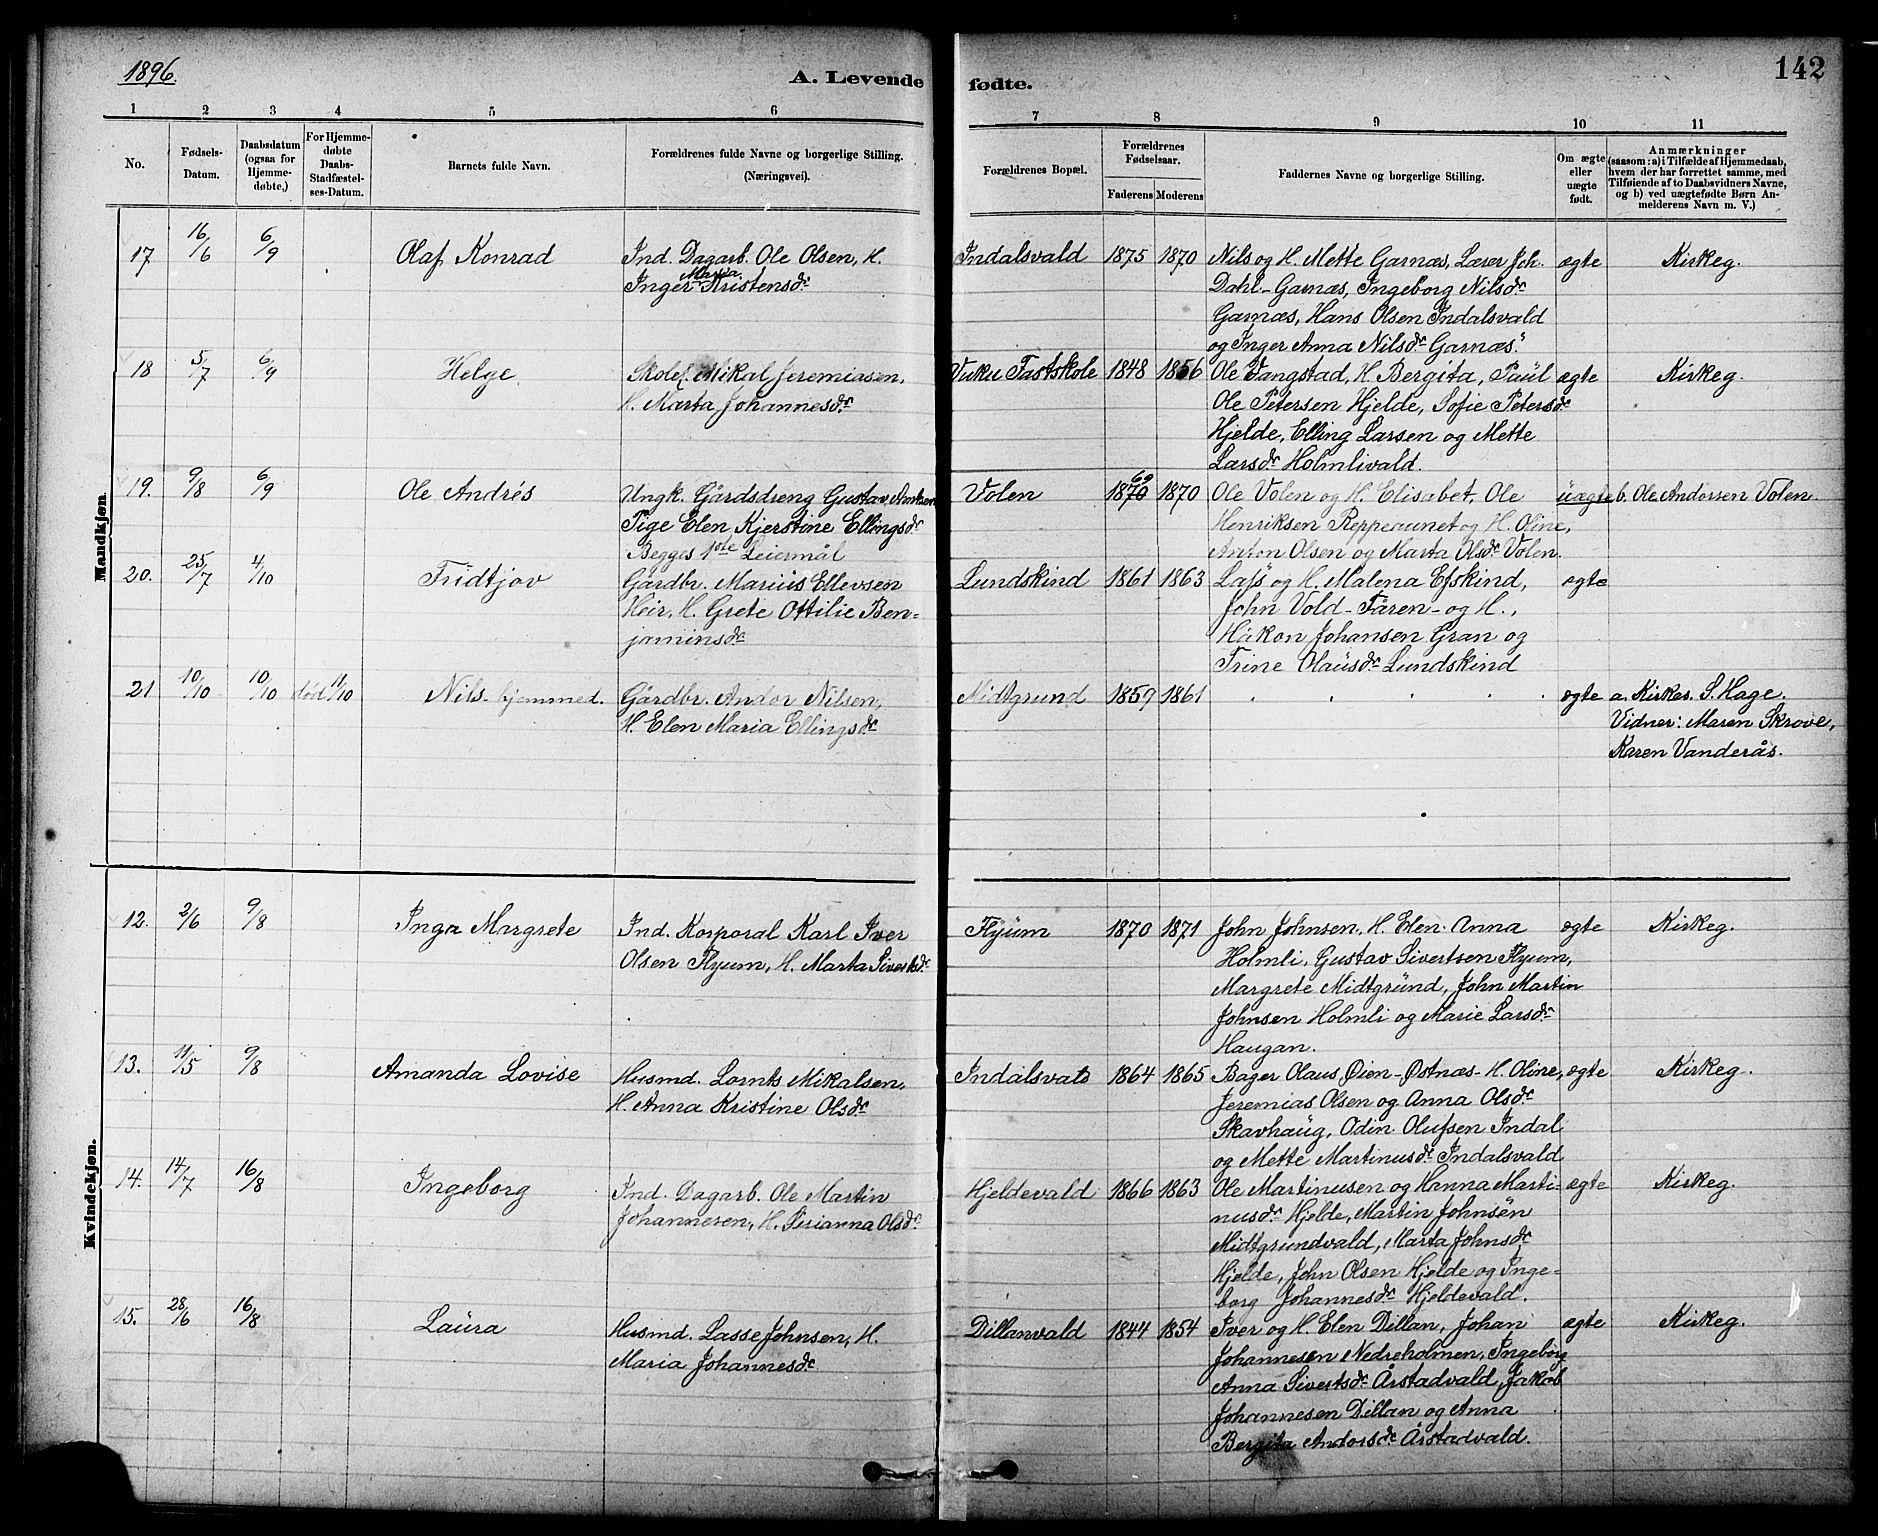 1896.
A. Levende fødte.
142
1 2 3 4 5 6 7 8 9 10 11
No.
Fødsels-
Datum.
Daabsdatum
(ogsaa for
Hjemme-
døbte,)
For Hjemme-
døbte
Daabs-
Stadfæstel-
ses-Datum.
Barnets fulde Navn.
Forældrenes fulde Navne og borgerlige Stilling.
(Næringsvei).
Forældrenes Bopæl.
Forældrenes
Fødselsaar.
Faderens Moderens
Faddernes Navne og borgerlige Stilling.
Om ægte
eller
uægte
født.
Anmærkninger
(saasom: a) i Tilfælde af Hjemmedaab,
hvem der har forrettet samme, med
Tilføiende af to Daabsvidners Navne,
og b) ved uægtefødte Børn An-
melderens Navn m. V.)
Mandkjøn.
17 16/6 6/9 Olaf Konrad
Ind. Dagarb. Ole Olsen, H.
Maria
Inger Kristensdr
Indalsvald 1875 1870
Nils og H. Mette Garnæs, Lærer Joh.
Dahl - Garnæs, Ingeborg Nilsdr
Garnæs, Hans Olsen Indalsvald
og Inger Anna Nilsdr Garnæs.
ægte Kirkeg.
18 5/7 6/9 Helge.
Skolel. Mikal Jeremiasen,
H. Marta Johannesdr
Vuku Fastskole 1848 1856
Ole Vangstad, H. Bergita, Paul
Ole Petersen Hjelde, Sofie Petersdr
Hjelde, Elling Larsen og Mette
Larsdr Holmlivald.
ægte Kirkeg.
19. 9/8 6/9 Ole Andrés
Ungk. Gårdsdreng Gustav
Pige Elen Kjerstine Ellingsdr
Begges 1ste Leiermål
Volen 69
1870 1870
Ole Volen og H. Elisabet, Ole
Henriksen Reppeaunet og H. Oline,
Anton Olsen og Marta Olsdr Volen.
uægte b. Ole Andorsen Volen.
20. 25/7 4/10 Fridtjov
Gårdbr. Marius Ellevsen
Heir, H. Grete Ottilie Ben-
jaminsdr
Lundskind 1861 1863
Lass og H. Malena Efskind,
John Vold - Fåren - og H.,
Håkon Johansen Gran og
Trine Olausdr Lundskind
ægte
21 10/10 10/10 død 11/10 Nils. hjemmed.
Gårdbr. Andor Nilsen,
H. Elen Maria Ellingsdr
Midtgrund 1859 1861
ægte a. Kirkes. S. Hage.
Vidner: Maren Skrove,
Karen Vanderås.
Kvindekjøn.
12. 2/6 9/8 Inga Margrete
Ind. Korporal Karl Iver
Olsen Flyum, H. Marta Sivertsdr
Flyum 1870 1871
John Johnsen, H. Elen Anna
Holmli, Gustav Sivertsen Flyum,
Margrete Midtgrund, John Martin
Johnsen Holmli og Marie Larsdr
Haugan.
ægte Kirkeg.
13. 11/5 9/8 Amanda Lovise
Husmd. Lornts Mikalsen,
H. Anna Kristine Olsdr
Indalsvald 1864 1865
Bager Olaus Øien - Østnæs - H. Oline,
Jeremias Olsen og Anna Olsdr
Skavhaug, Odin Olufsen Indal
og Mette Martinusdr Indalsvald
ægte Kirkeg.
14. 14/7 16/8 Ingeborg
Ind. Dagarb. Ole Martin
Johannesen, H. Olsdr
Hjeldevald 1866 1863
Ole Martinusen og Hanna Marti-
nusdr Hjelde, Martin Johnsen
Midtgrundvald, Marta Johnsdr
Hjelde, John Olsen Hjelde og Inge-
borg Johannesdr Hjeldevald.
ægte Kirkeg.
15. 28/6 16/8 Laura
Husmd. Lasse Johnsen, H.
Maria Johannesdr
Dillanvald 1844 1854
Iver og H. Elen Dillan, Johan
Johannesen Nedreholmen, Ingeborg
Anna Sivertsdr Årstadvald, Jakob
Johannesen Dillan og Anna
Bergita Andorsdr Årstadvald.
ægte Kirkeg.